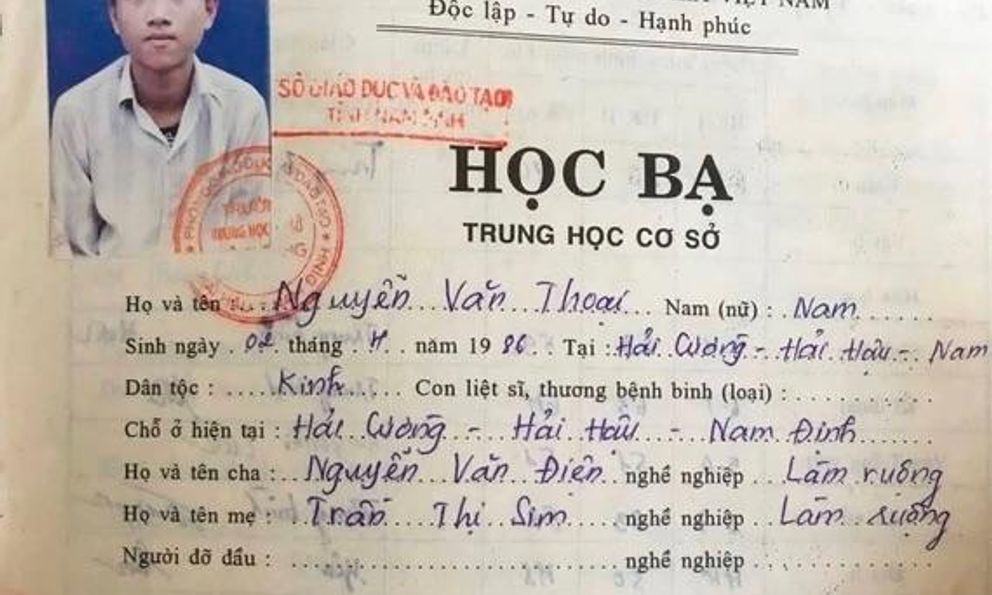 VIỆT NAM
Độc lập - Tự do - Hạnh phúc
SỞ GIÁO DỤC VÀ ĐÀO TẠO
TỈNH NAM ĐỊNH
HỌC BẠ
TRUNG HỌC CƠ SỞ
PHÒNG GIÁO DỤC ĐÀO TẠO
TRƯỜNG
TRUNG HỌC
Họ và tên : Nguyễn Văn Thoại Nam (nữ) : Nam
Sinh ngày 02 tháng 4 năm 19 86 Tại : Hải Cường - Hải Hậu - Nam
Dân tộc : Kinh Con liệt sĩ, thương bệnh binh (loại) :
Chỗ ở hiện tại : Hải Cường - Hải Hậu - Nam Định
Họ và tên cha : Nguyễn Văn Điện nghề nghiệp Làm ruộng
Họ và tên mẹ : Trần Thị Sim nghề nghiệp Làm ruộng
Người đỡ đầu : nghề nghiệp